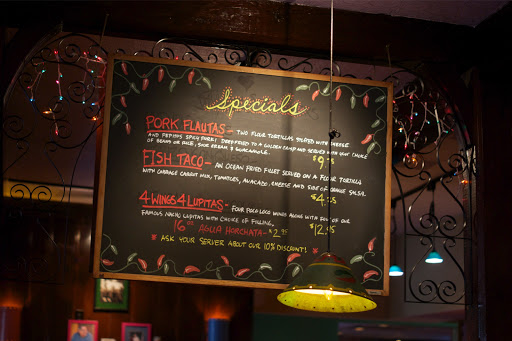 Specials
PORK FLAUTAS - TWO FLOUR TORTILLAS STUFFED WITH CHEESE
AND PEPITO'S SPICY PORK! DEEP FRIED TO A GOLDEN CRISP AND SERVED WITH YOUR CHOICE
OF BEANS OR RICE, SOUR CREAM & GUACAMOLE. $9.95
FISH TACO - AN OCEAN FRIED FILLET SERVED ON A FLOUR TORTILLA
WITH CABBAGE CARROT MIX, TOMATOES, AVACADO, CHEESE AND SIDE OF ORANGE SALSA.
$4.55
4 WINGS 4 LUPITAS - FOUR POCO LOCO WINGS ALONG WITH FOUR OF OUR
FAMOUS NACHO LUPITAS WITH CHOICE OF FILLING. $12.95
16oz AGUA HORCHATA - $2.95
* ASK YOUR SERVER ABOUT OUR 10% DISCOUNT! *